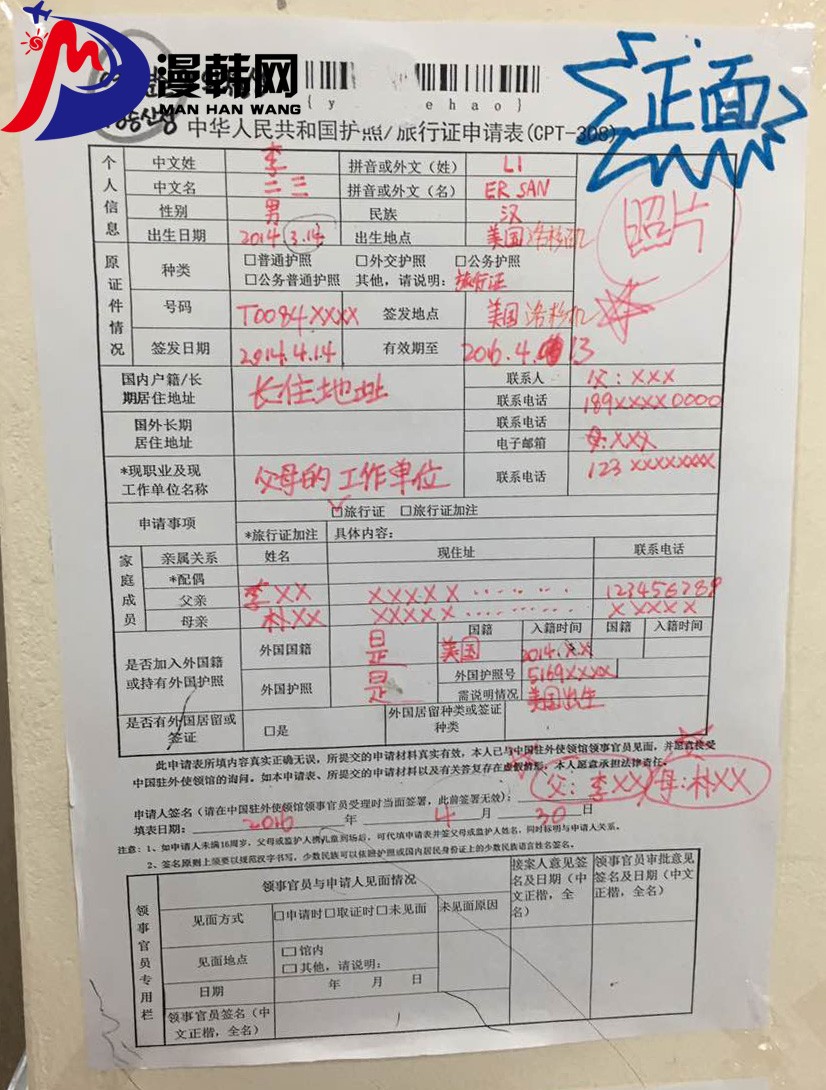 漫韩网
MAN HAN WANG
正面
{y ehao}
中华人民共和国护照/旅行证申请表(CPT-308)
个人信息
中文姓 李 拼音或外文(姓) LI
中文名 二三 拼音或外文(名) ER SAN
性别 男 民族 汉
出生日期 2014.3.14 出生地点 美国洛杉矶
照片
原证件情况
种类 □普通护照 □外交护照 □公务护照
□公务普通护照 其他,请说明: 旅行证
号码 T0084XXXX 签发地点 美国洛杉矶
签发日期 2014.4.14 有效期至 2016.4.13
国内户籍/长期居住地址 长住地址 联系人 父:XXX
联系电话 189XXXX0000
国外长期居住地址 联系电话
电子邮箱 母:XXX
*现职业及现工作单位名称 父母的工作单位 联系电话 123 XXXXXXXX
申请事项 □旅行证 □旅行证加注
*旅行证加注 具体内容:
家庭成员
亲属关系 姓名 现住址 联系电话
*配偶
父亲 李XX XXXXX 123456789
母亲 朴XX XXXXX XXXXX
是否加入外国籍或持有外国护照
国籍 入籍时间 国籍 入籍时间
外国国籍 是 美国 2014.XX
外国护照 是 外国护照号 5169XXXX
需说明情况 美国出生
是否有外国居留或签证 □是 外国居留种类或签证种类
此申请表所填内容真实正确无误,所提交的申请材料真实有效,本人已与中国驻外使领馆领事官员见面,并愿意接受
中国驻外使领馆的询问。如本申请表、所提交的申请材料以及有关答复存在虚假情形,本人愿意承担法律责任。
父:李XX 母:朴XX
申请人签名(请在中国驻外使领馆领事官员受理时当面签署,此前签署无效):
填表日期: 2016 年 4 月 30 日
注意:1、如申请人未满16周岁,父母或监护人携儿童到场后,可代填申请表并签父母或监护人姓名,同时标明与申请人关系。
2、签名原则上须要以规范汉字书写,少数民族可以依照护照或国内居民身份证上的少数民族语言姓名签名。
领事官员专用栏
领事官员与申请人见面情况 接案人意见签名及日期(中文正楷,全名) 领事官员审批意见签名及日期(中文正楷,全名)
见面方式 □申请时□取证时□未见面 未见面原因
见面地点 □馆内
□其他,请说明:
日期 年 月 日
领事官员签名(中文正楷,全名)